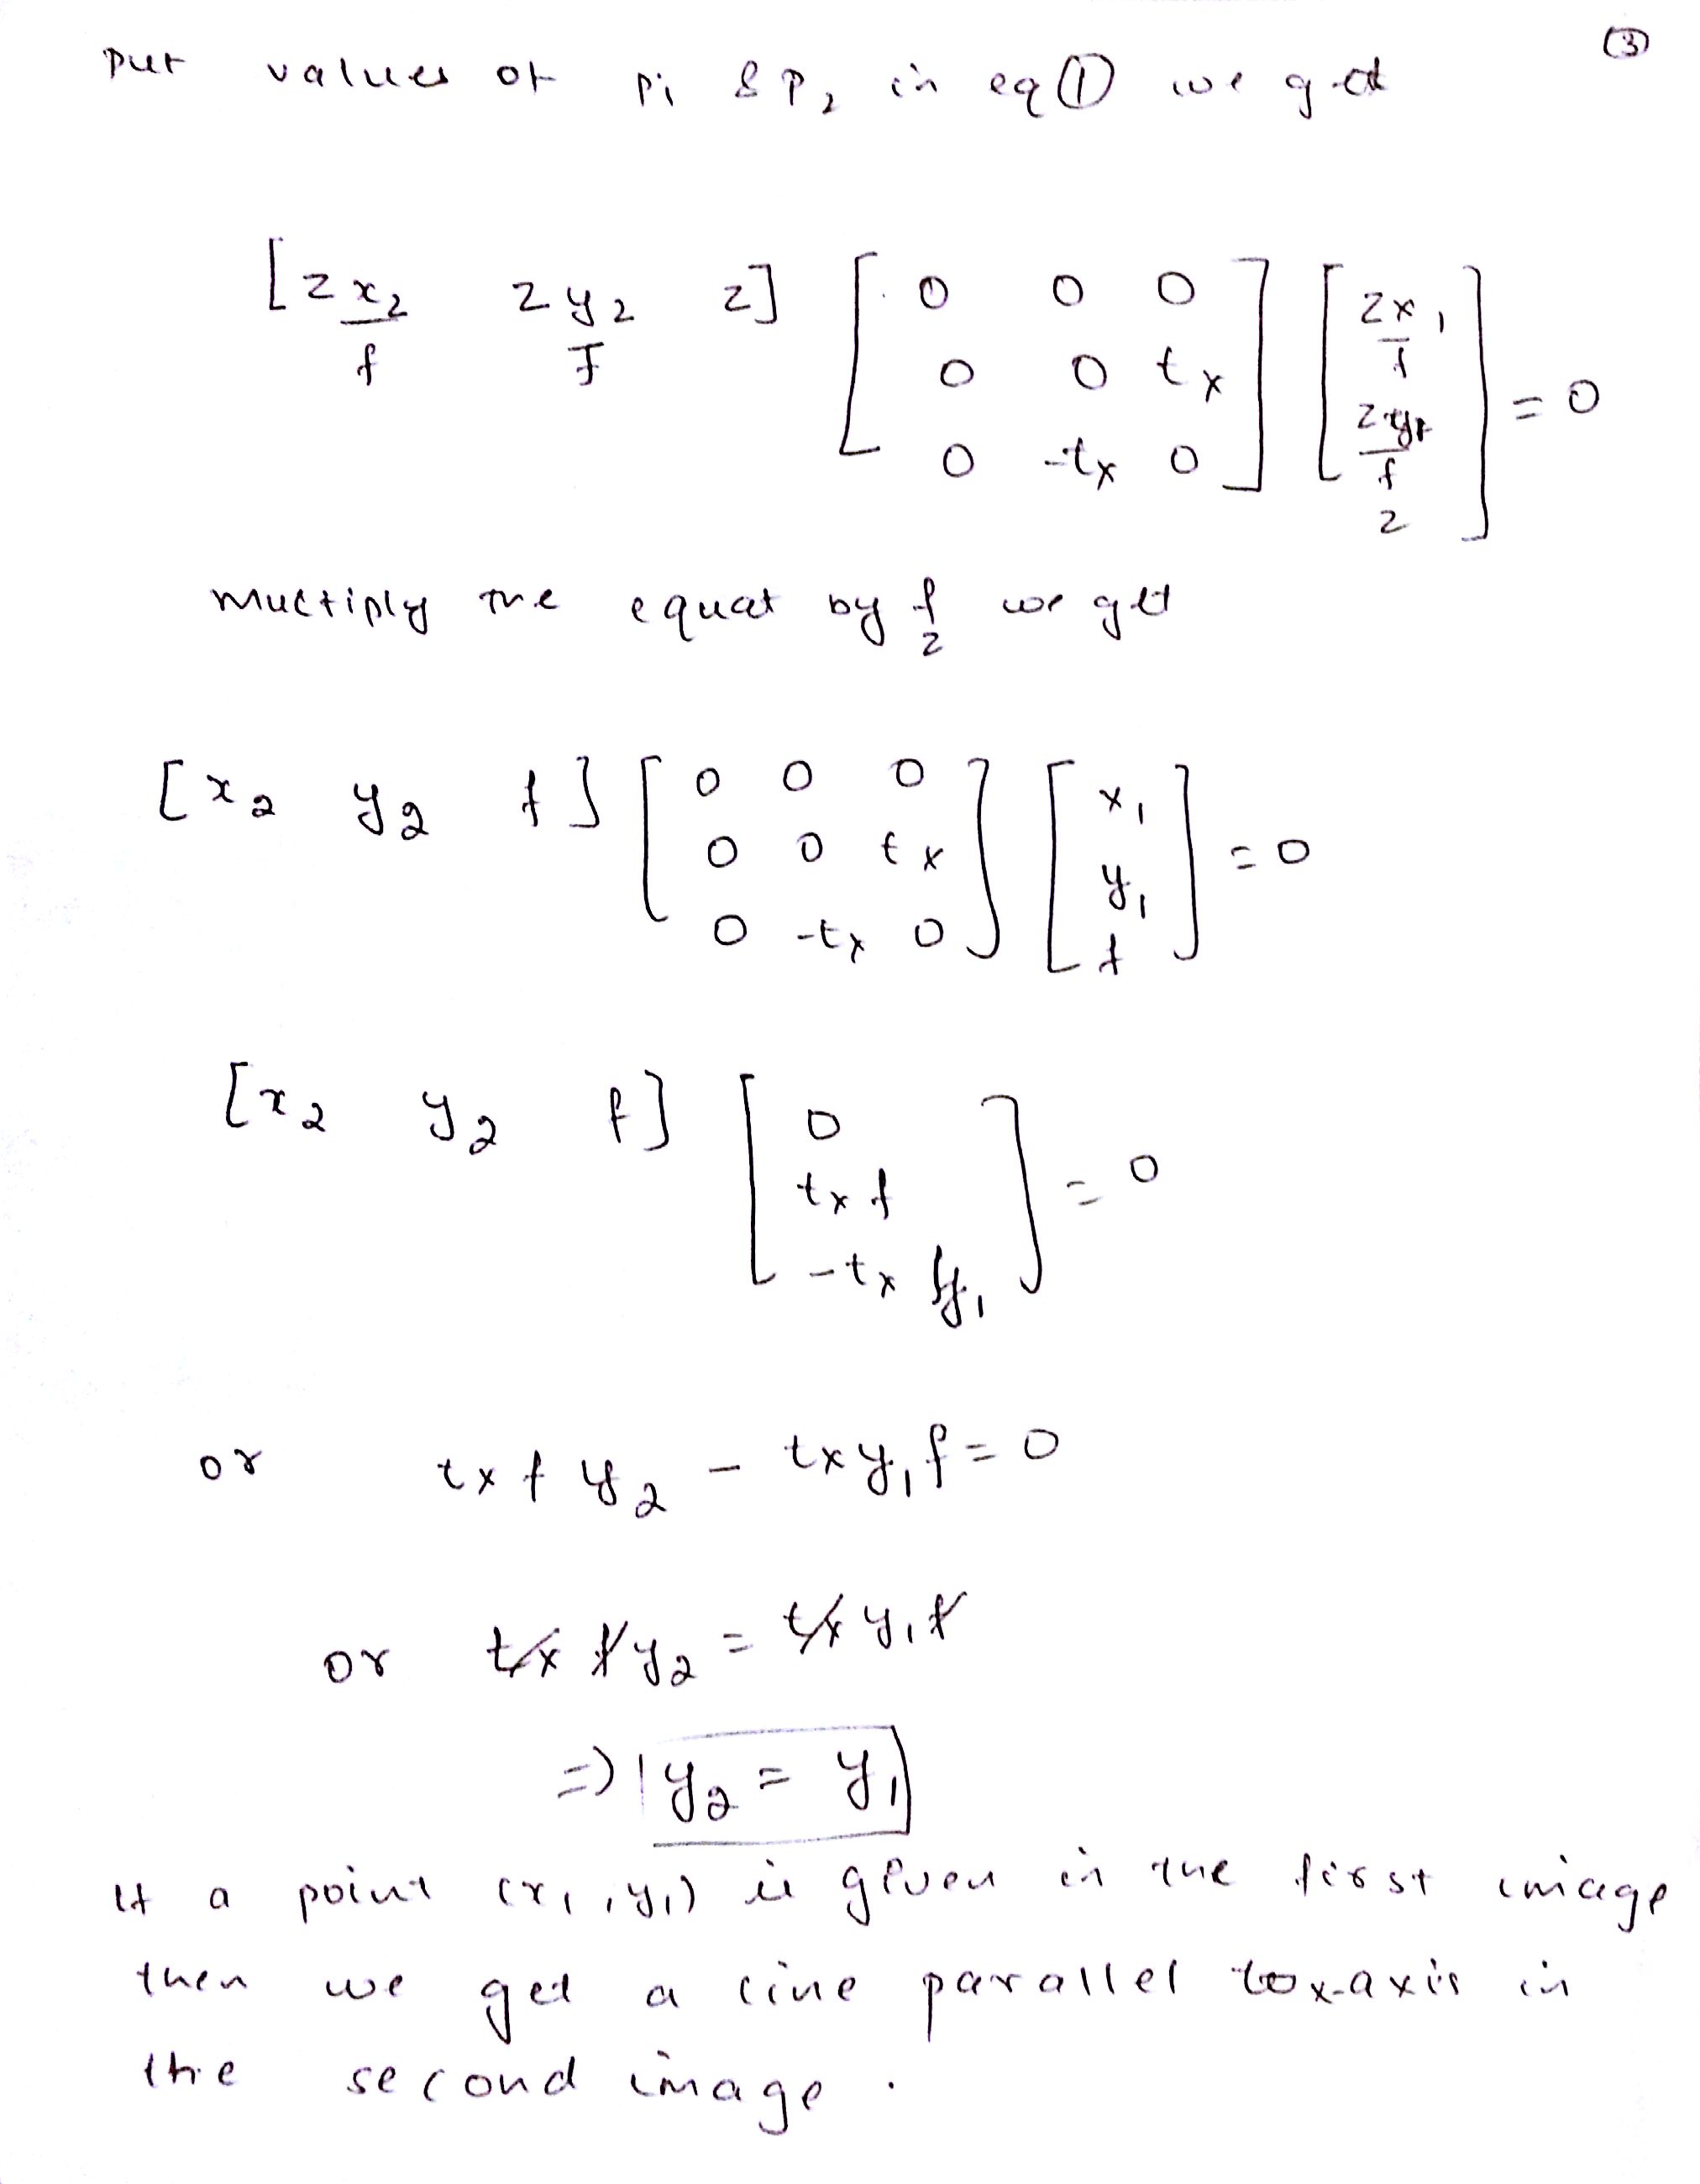 ③
put values of pi & P₂ in eq ① we get
[zx₂/f zy₂/f z] [0 0 0; 0 0 tx; 0 -tx 0] [zx₁/f; zy₁/f; z] = 0
multiply the equat by f/z we get
[x₂ y₂ f] [0 0 0; 0 0 tx; 0 -tx 0] [x₁; y₁; f] = 0
[x₂ y₂ f] [0; tx f; -tx y₁] = 0
or tx f y₂ - tx y₁ f = 0
or tx f y₂ = tx y₁ f
=> y₂ = y₁
If a point (x₁, y₁) is given in the first image
then we get a line parallel to x-axis in
the second image.